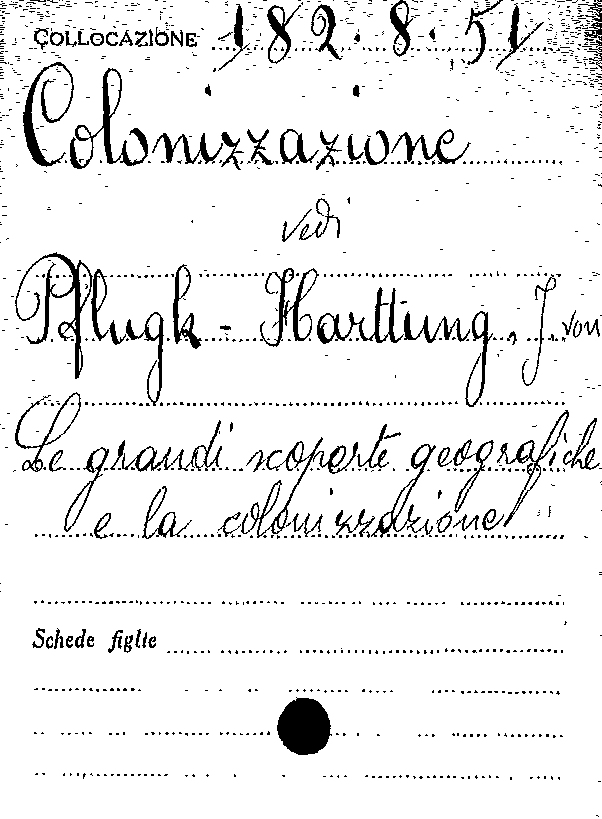 COLLOCAZIONE 182.8.51
Colonizzazione
vedi
Pflugk-Harttung, J. von
Le grandi scoperte geografiche
e la colonizzazione
Schede figlie